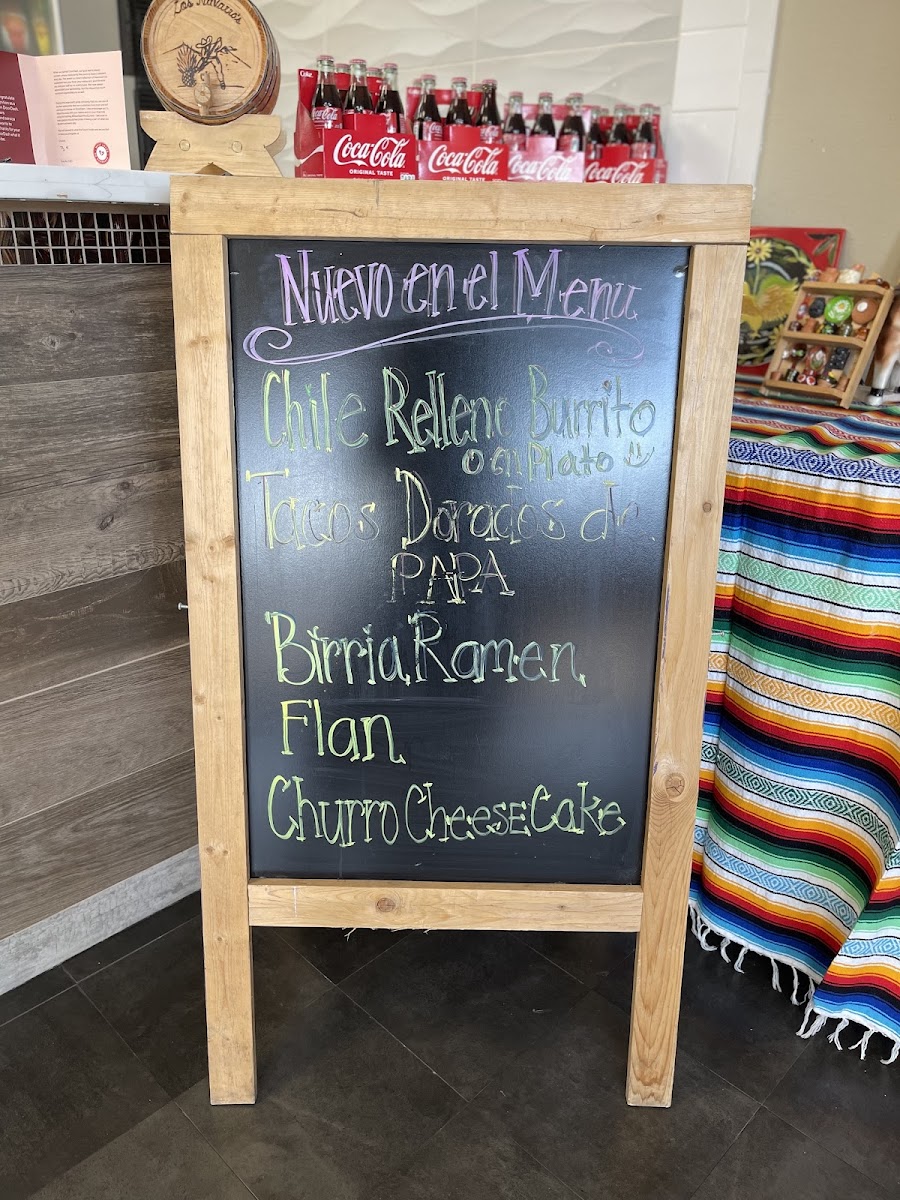 Los Navarros
Coke
Coca-Cola
ORIGINAL TASTE
Coca-Cola
ORIGINAL TASTE
Coca-Cola
Coca-Cola
Nuevo en el Menu
Chile Relleno Burrito
o en Plato
Tacos Dorados de
PAPA
Birria Ramen
Flan
Churro CheesECake